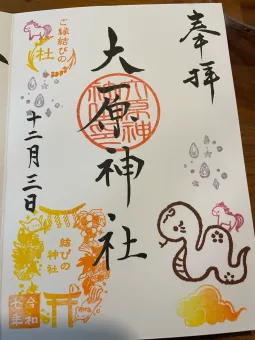 奉拝
大原神社
ご縁結びの
社
十二月三日
結びの
神社
令和
七年